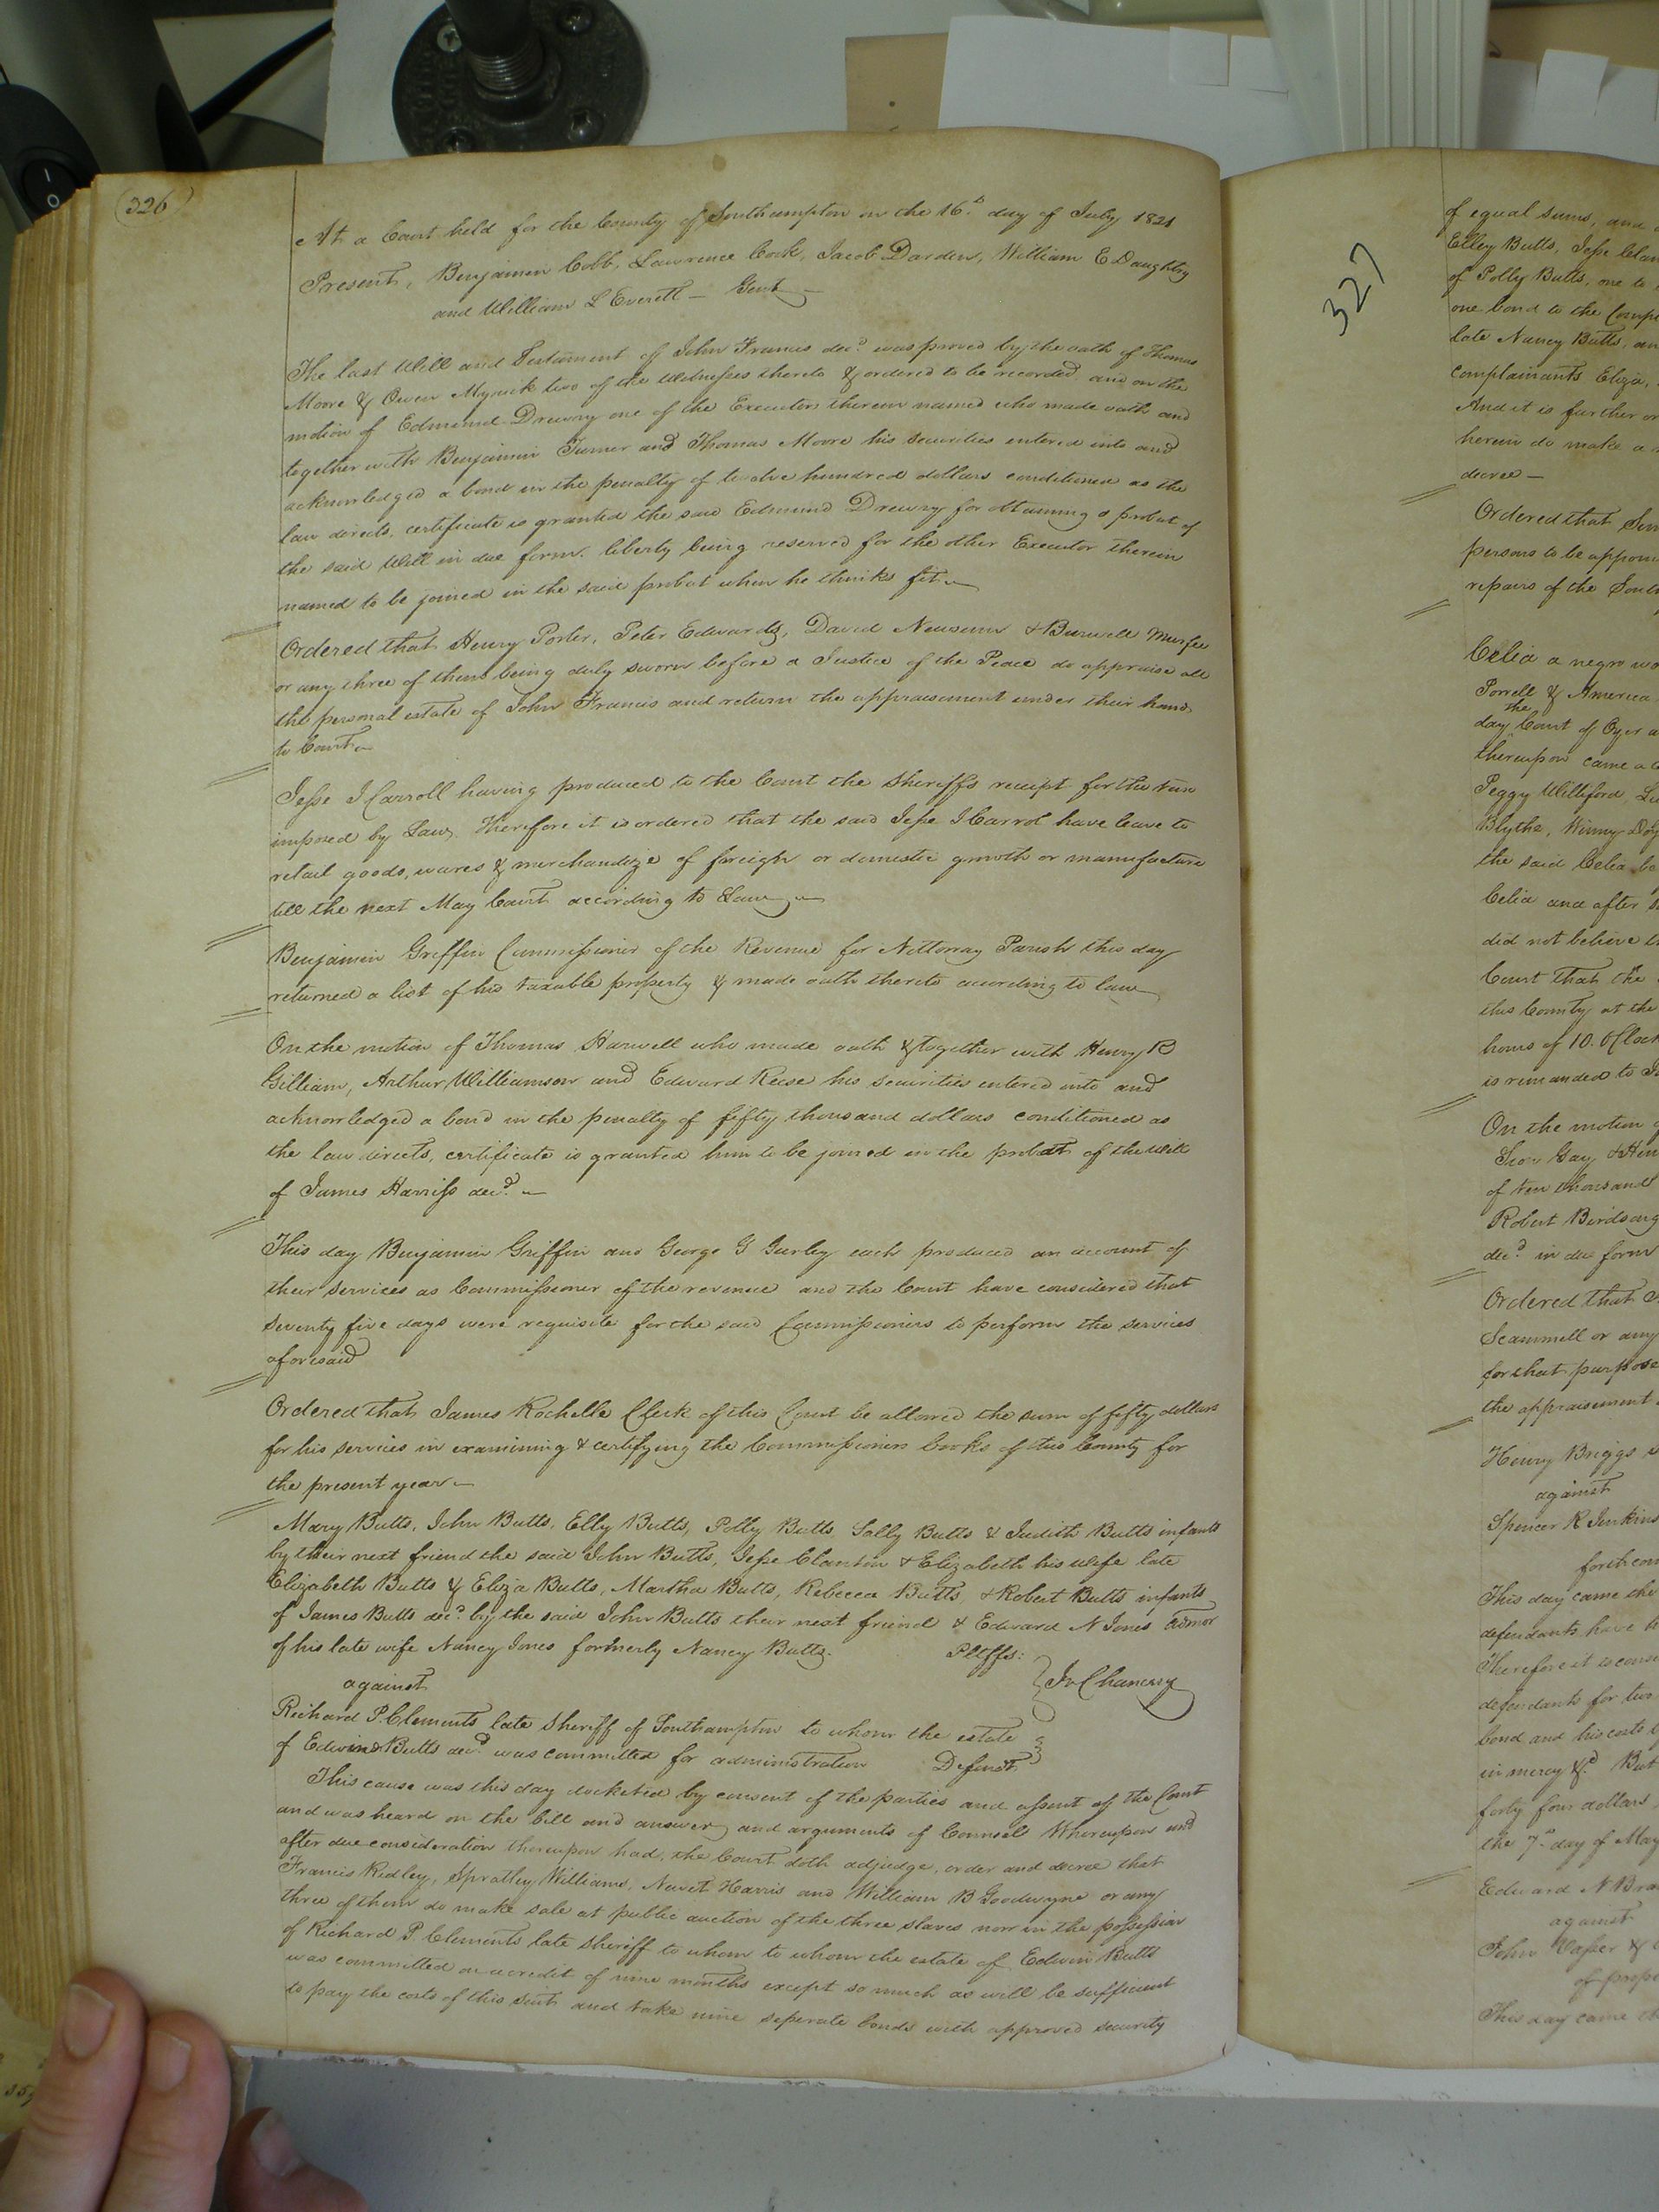 (326)
At a Court held for the County of Southampton on the 16.th day of July 1821
Present, Benjamin Cobb, Lawrence Cook, Jacob Darden, William E Daughtry
and William L Everett - Gent -
The last Will and Testament of John Francis dec.d was proved by the oath of Thomas
Moore & Owen Myrick two of the Witnesses thereto & ordered to be recorded and on the
motion of Edmund Drewry one of the Executors therein named who made oath and
together with Benjamin Turner and Thomas Moore his securities entered into and
acknowledged a bond in the penalty of twelve hundred dollars conditioned as the
law directs, certificate is granted the said Edmund Drewry for obtaining a probat of
the said Will in due form. liberty being reserved for the other Executor therein
named to be joined in the said probat when he thinks fit -
Ordered that Henry Porter, Peter Edwards, David Newsum & Burwell Murfee
or any three of them being duly sworn before a Justice of the Peace do appraise all
the personal estate of John Francis and return the appraisement under their hands
to Court -
Jesse J Carroll having produced to the Court the Sheriffs receipt for the tax
imposed by Law, Therefore it is ordered that the said Jesse J Carrol have leave to
retail goods, wares & merchandize of foreign or domestic growth or manufacture
till the next May Court according to Law -
Benjamin Griffin Commissioner of the Revenue for Nottoway Parish this day
returned a list of his taxable property & made oath thereto acording to law
On the motion of Thomas Harwell who made oath & together with Henry B
Gilliam, Arthur Williamson and Edward Reese his securities entered into and
acknowledged a bond in the penalty of fifty thousand dollars conditioned as
the law directs, certificate is granted him to be joined in the probat of the will
of James Harriss dec.d -
This day Benjamin Griffin and George G Gurley each produced an account of
their services as Commissioner of the revenue and the Court have considered that
seventy five days were requisite for the said Commissioners to perform the services
aforesaid
Ordered that James Rochelle Clerk of this Court be allowed the sum of fifty dollars
for his services in examining & certifying the Commissioners books of this County for
the present year -
Mary Butts, John Butts, Elly Butts, Polly Butts, Sally Butts & Judith Butts infants
by their next friend the said John Butts, Jesse Clanton & Elizabeth his wife late
Elizabeth Butts & Eliza Butts, Martha Butts, Rebecca Butts, & Robert Butts infants
of James Butts dec.d by the said John Butts their next friend & Edward N Jones admor
of his late wife Nancy Jones formerly Nancy Butts. Pltffs:
against
In Chancery
Richard P. Clements late Sheriff of Southampton to whom the estate
of Edwin Butts dec.d was committed for administration Defendt
This cause was this day docketed by consent of the parties and assent of the Court
and was heard on the bill and answer, and arguments of Counsel Whereupon and
after due consideration thereupon had, the Court doth adjudge, order and decree that
Francis Ridley, Spratley Williams, Newit Harris and William B Goodwyne or any
three of them do make sale at public auction of the three slaves now in the possession
of Richard P. Clements late Sheriff to whom to whom the estate of Edwin Butts
was committed on a credit of nine months except so much as will be sufficient
to pay the costs of this suit and take nine seperate bonds with approved security
327
of equal sums, and
Elley Butts, Jesse Clan
of Polly Butts, one to
one bond to the Comp
late Nancy Butts, an
complainants Eliza,
And it is further or
herein do make a
decree -
Ordered that
persons to be appoin
repairs of the South
Celia a negro wo
Powell & America
the
day Court of Oyer a
thereupon came a
Peggy Williford,
Blythe, Winny
the said Celia
Celia and after
did not believe
Court that the
this County at the
hours of 10. OClock
is remanded to
On the motion
Gay & Hen
of ten thousand
Robert Birdsong
dec.d in due form
Ordered that
Scammell or any
for that purpose
the appraisement
Henry Briggs
against
Spencer R Jenkins
forthcom
This day came the
defendants have
Therefore it is consi
defendants for two
bond and his costs
in mercy &c But
forty four dollars
the 7th day of May
Edward N Bra
against
John Vasser &
of prope
This day came th